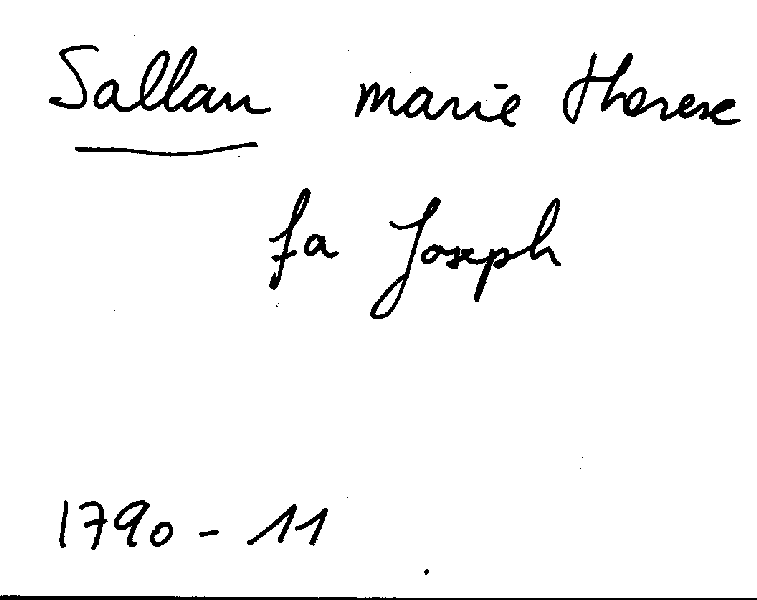 Sallan marie therese
fa Joseph
1790 - 11